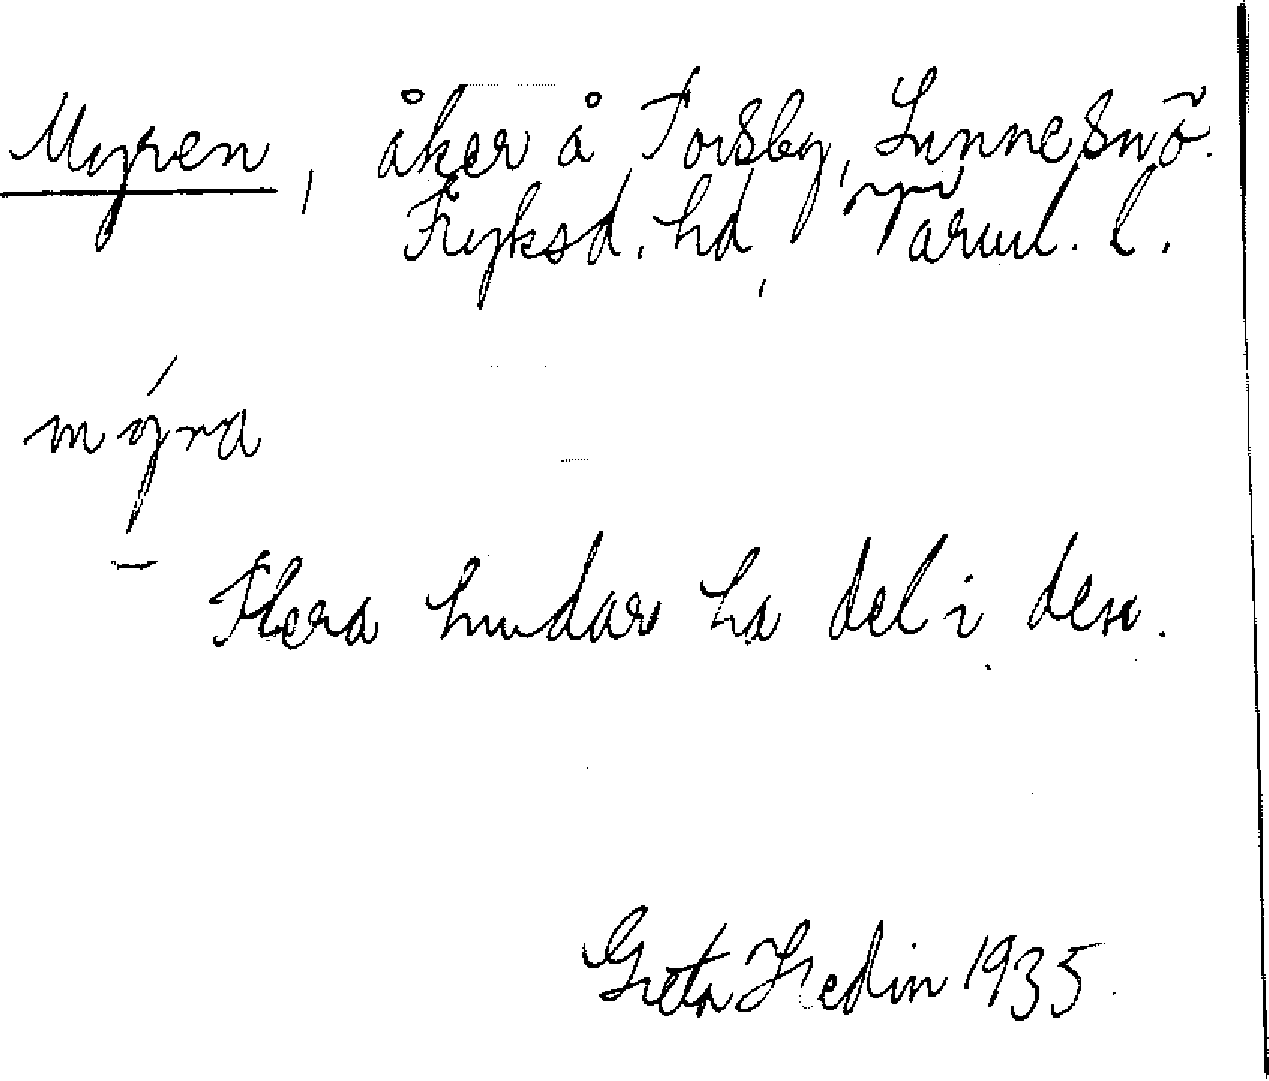 Myren, åker å Torsby, Lunnesn
Fryksd. hd, Värml. l.
mýra
Flera hudar ha del i den.
Greta Hedin 1935.